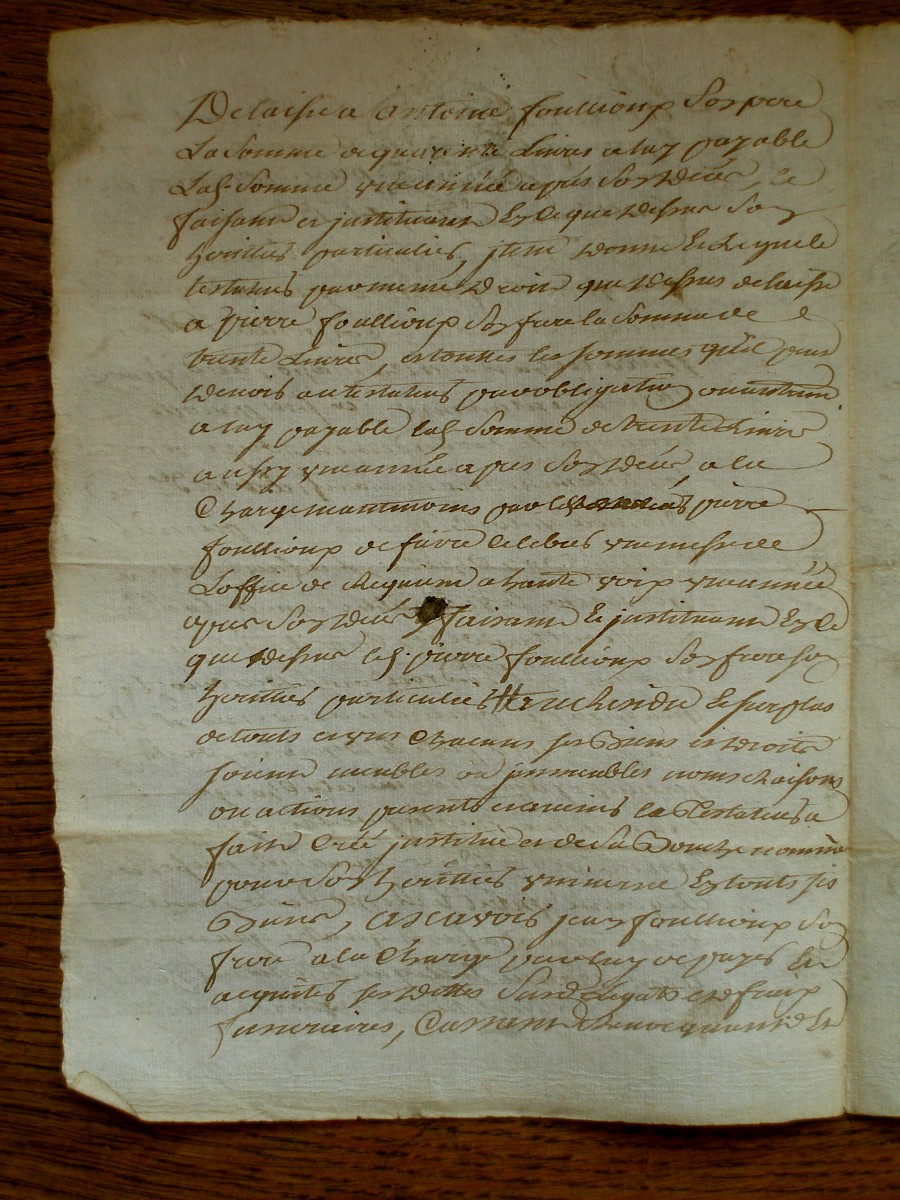 Delaisse a Antoine foullioux Son pere
La Somme de quarente Livres a luy payable
Lad. Somme une année apres Son decés, le
faisant et jnstituant En ce que dessus Son
heritier particulier, jtem donne Et Legue le
testateur par meme droit que dessus delaisse
a pierre foullioux Son frere la Somme de
trente Livres, et toutes les sommes qu'il peut
devoir au testateur par obligation ou autrement
a luy payable lad. Somme de trente Livres
aussy une année apres Son decés, a la
Charge neantmoins par led. pierre
foullioux de faire celebrer une messe de
L'office de Requiem a haute voix une année
apres Son decés faisant Et jnstituant En ce
que dessus led. pierre foullioux Son frere son
heritier particulier Et au Residu Et surplus
de touts et uns Chacuns ses Biens et droits
soient meubles ou jmmeubles noms Raisons
ou actions presents et avenirs le Testateur a
fait Créé jnstitué et de Sa Bouche nommé
pour Son heritier universel En touts ses
Biens, a Scavoir jean foullioux Son
frere a la Charge par luy de payer Et
acquiter ses dettes Susd. Legats et de fraix
funeraires, Cassant Revocquant Et